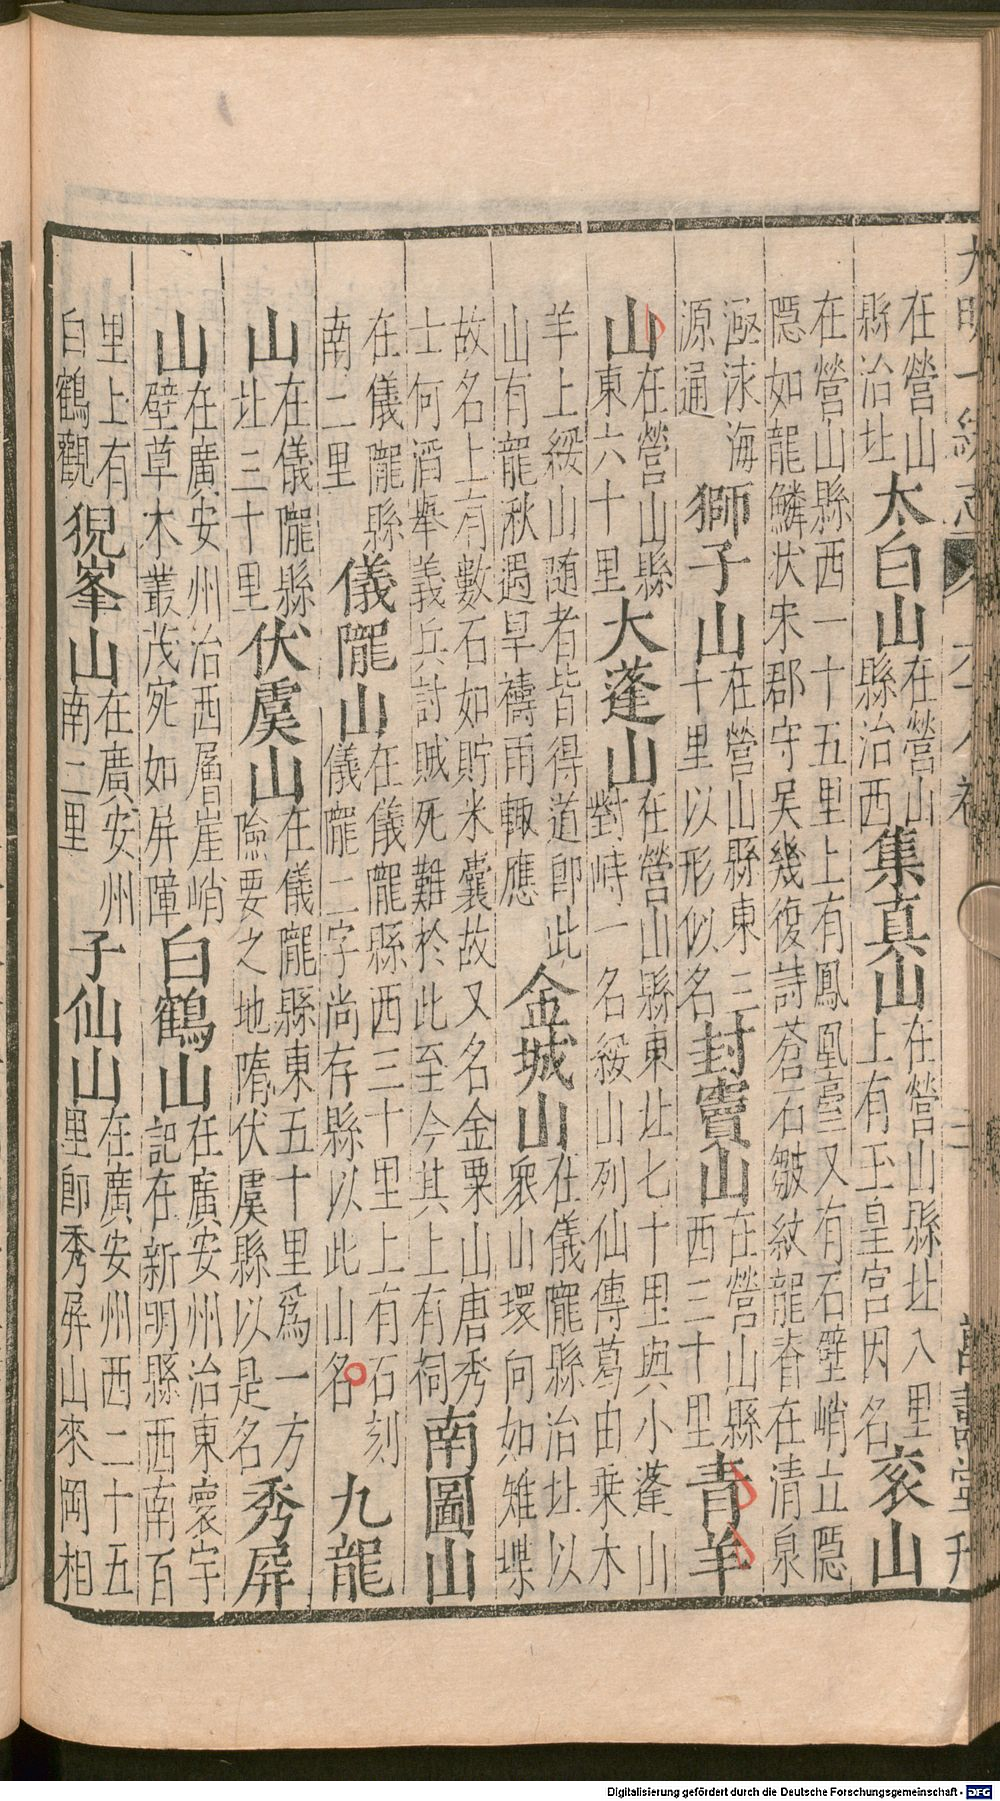 大明一統志 卷六十八卷 二 萬壽堂刊
在營山縣治北太白山在營山縣治西集真山在營山縣北八里上有玉皇宮因名衮山
在營山縣西一十五里上有鳳凰臺又有石壁峭立隱隱如龍鱗状宋郡守吴幾復詩蒼石皺紋龍脊在清泉
海源通獅子山在營山縣東三十里以形似名封竇山在營山縣西三十里青羊
山在營山縣東六十里大蓬山在營山縣東北七十里與小蓬山對峙一名綏山列仙傳葛由乗木
羊上綏山随者皆得道即此山有龍湫遇旱禱雨輙應金城山在儀隴縣治北以衆山環向如雉堞
故名上有數石如貯米囊故又名金粟山唐秀士何滔舉義兵討賊死難於此至今其上有祠南圖山
在儀隴縣南二里儀隴山在儀隴縣西三十里上有石刻儀隴二字尚存縣以此山名九龍
山在儀隴縣北三十里伏虞山在儀隴縣東五十里為一方險要之地隋伏虞縣以是名秀屏
山在廣安州治西層崖峭壁草木叢茂宛如屏障白鶴山在廣安州治東寰宇記在新明縣西南百
里上有白鶴觀猊峯山在廣安州南二里子仙山在廣安州西二十五里即秀屏山來岡相
Digitalisierung gefördert durch die Deutsche Forschungsgemeinschaft - DFG